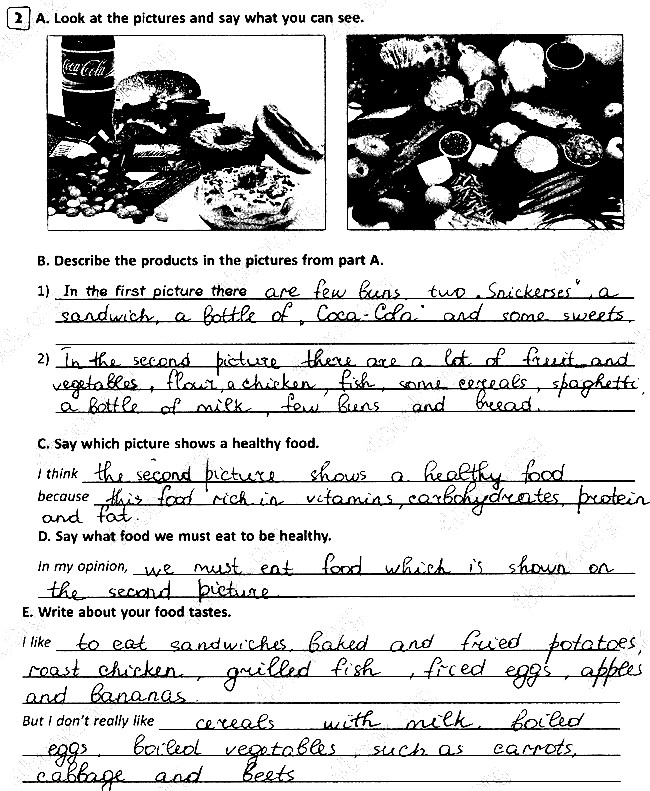 2 A. Look at the pictures and say what you can see.
Coca-Cola
B. Describe the products in the pictures from part A.
1) In the first picture there are few buns, two „Snickerses", a
sandwich, a bottle of „Coca-Cola" and some sweets.
2) In the second picture there are a lot of fruit and
vegetables, flour, a chicken, fish, some cereals, spaghetti,
a bottle of milk, few buns and bread.
C. Say which picture shows a healthy food.
I think the second picture shows a healthy food
because this food rich in vitamins, carbohydrates, protein
and fat.
D. Say what food we must eat to be healthy.
In my opinion, we must eat food which is shown on
the second picture
E. Write about your food tastes.
I like to eat sandwiches, baked and fried potatoes,
roast chicken, grilled fish, fried eggs, apples
and bananas
But I don't really like cereals with milk, boiled
eggs, boiled vegetables, such as carrots,
cabbage and beets